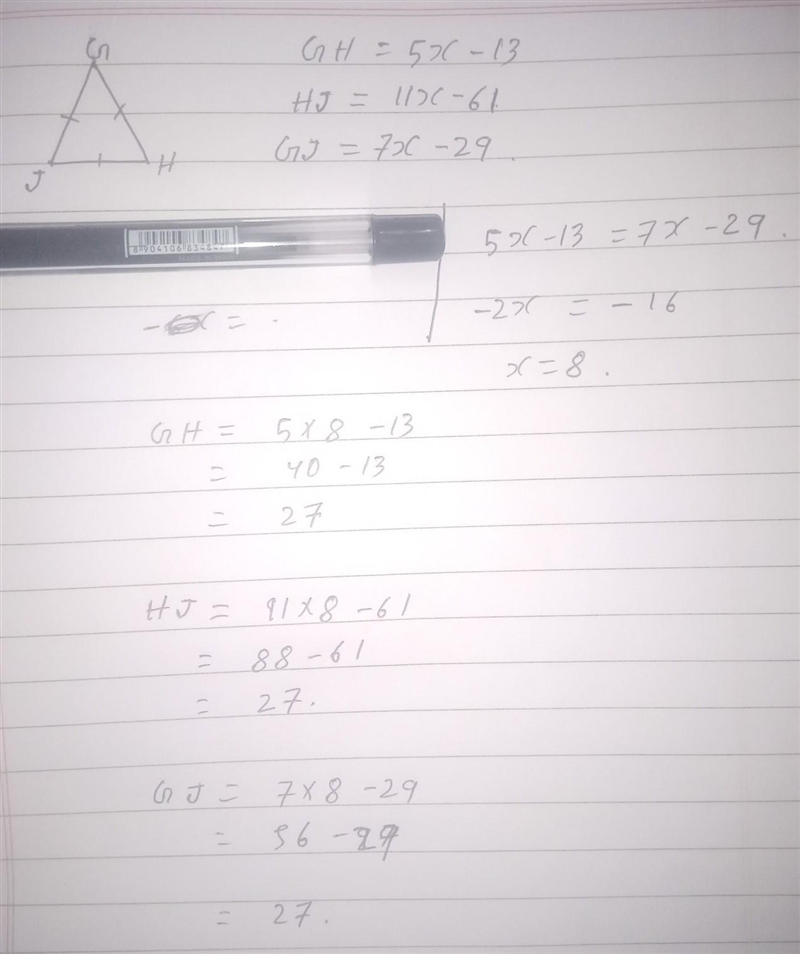 G
J H
GH = 5x - 13
HJ = 11x - 61.
GJ = 7x - 29.
8 904106 83484
5x - 13 = 7x - 29.
-2x = -16
x = 8.
x = .
GH = 5 × 8 - 13
= 40 - 13
= 27
HJ = 11 × 8 - 61
= 88 - 61
= 27.
GJ = 7 × 8 - 29
= 56 - 29
= 27.